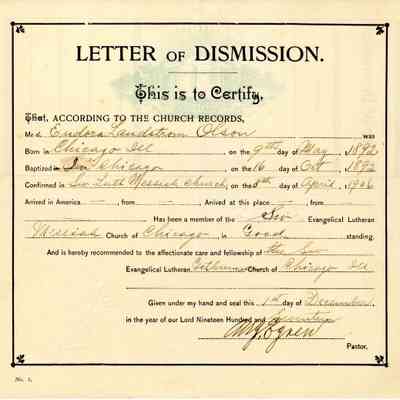 LETTER OF DISMISSION.
This is to Certify,
That, ACCORDING TO THE CHURCH RECORDS,
Mrs. Eudora Landstrom Olson was
Born in Chicago Ill, on the 9th day of May, 1892
Baptized in Chicago, on the 16 day of Oct, 1892
Confirmed in Sw Luth Messiah Church, on the 5th day of April, 1906
Arrived in America —, from —. Arrived at this place —, from —
Has been a member of the Sw Evangelical Lutheran
Messiah Church of Chicago, in Good standing.
And is hereby recommended to the affectionate care and fellowship of the Sw
Evangelical Lutheran Church of Chicago Ill
Given under my hand and seal this 1st day of December,
in the year of our Lord Nineteen Hundred and
Pastor.
No. 1.